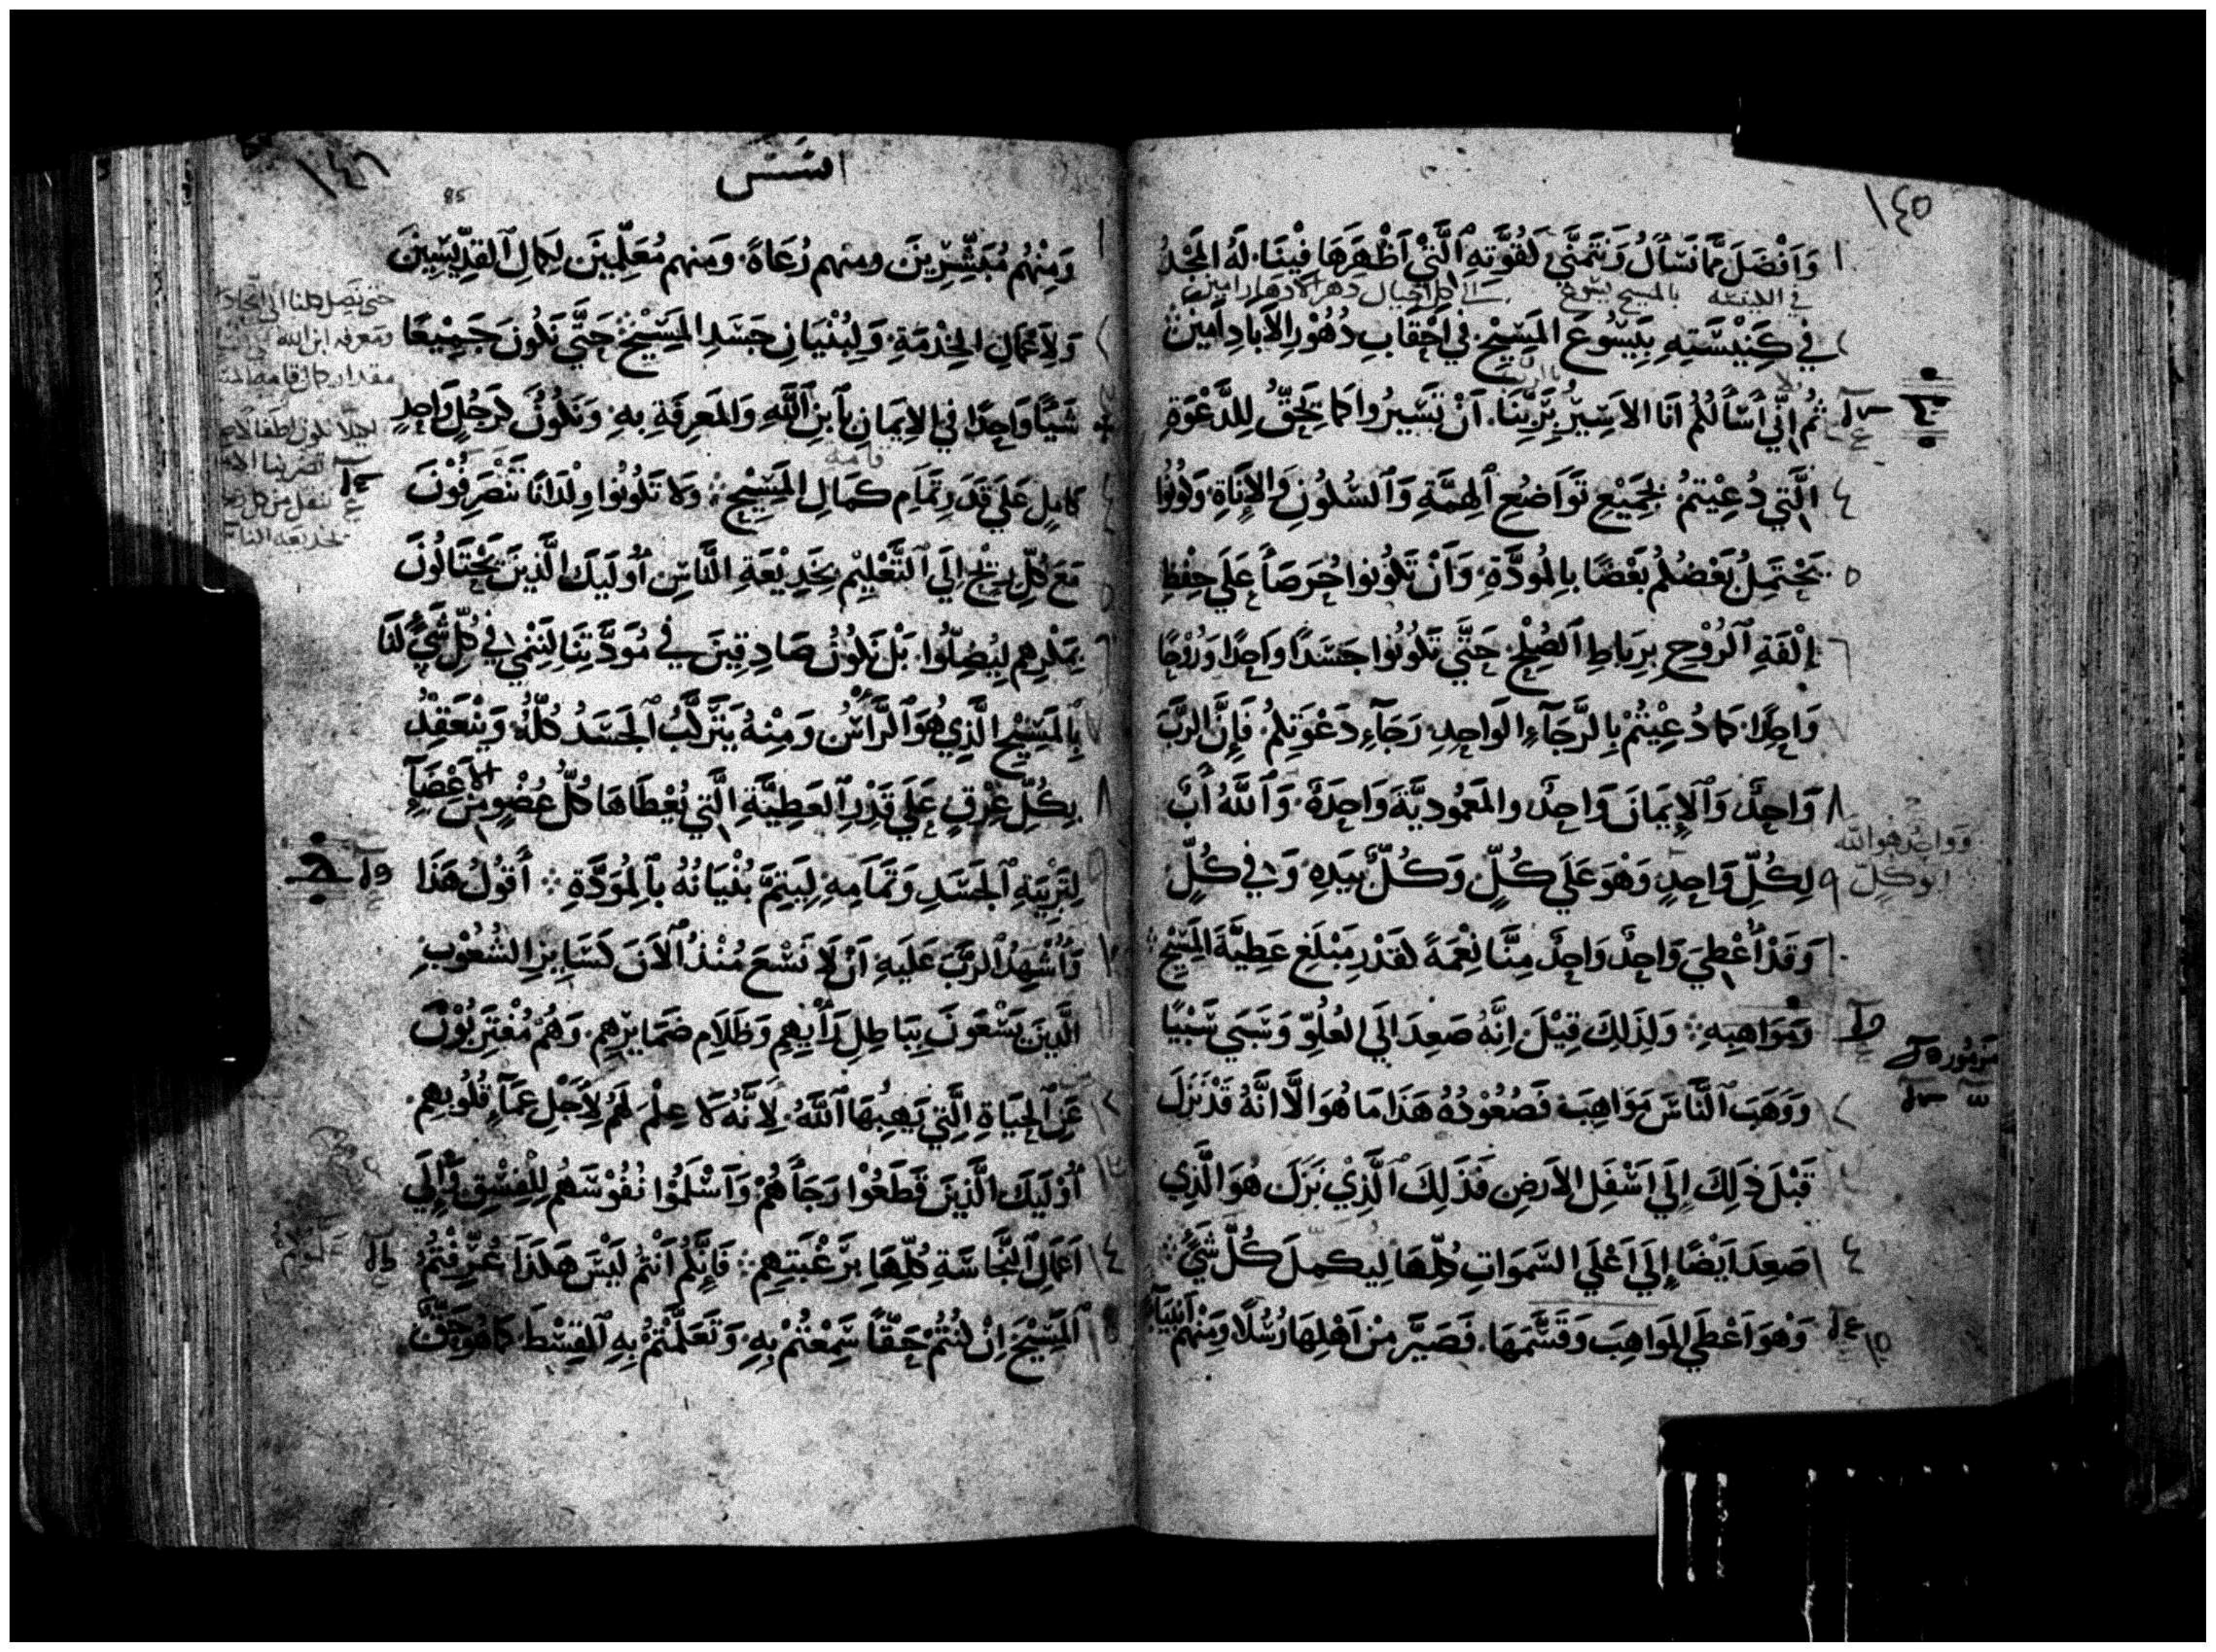 ١٤٥
١ وَاَفْضَلَ مِمَّا نَسْأَلُ وَنَتَمَنَّي لَقُوَّتِهِ ٱلَّتِيْ اَظْهَرَهَا فِيْنَا. لَهُ المَجْدُ
في البيعة بالمسيح يسوع الي كل اجيال دهر الادهار امين
٢ في كَنِيْسَتِهِ بِيَسُوعَ المَسِيْحِ. في اَحْقَابِ دُهُوْرِ الاَبَادِ اَمِيْنَ
بالرب
٣ ثُمَّ اِنِّي أَسْأَلُكُمْ اَنَا الاَسِيْرُ بِرَبِّنَا. اَنْ تَسِيْرُوا كَمَا يَحِقُّ لِلدَّعْوَةِ
٤ الَّتِي دُعِيْتُمْ بِجَمِيْعِ تَوَاضُعِ ٱلهِمَّةِ وَٱلسُّكُونِ وَالاَنَاةِ. وَكُونُوا
٥ يَحْتَمِلُ بَعْضُكُمْ بَعْضًا بِالمُودَّةِ. وَأَنْ تَكُوْنُوا حُرَصَاً عَلَي حِفْظِ
٦ اِلْفَةِ ٱلرُّوْحِ بِرِبَاطِ ٱلصُّلْحِ. حَتَّي تَكُوْنُوا جَسَدًا وَاحِدًا وَرُوْحًا
٧ وَاحِدًا. كَمَا دُعِيْتُمْ بِالرَّجَآءِ الوَاحِدِ رَجَآءِ دَعْوَتِكُمْ. فَاِنَّ الرَّبَّ
٨ وَاحِدٌ وَٱلاِيمَانَ وَاحِدٌ والمَعْمُودِيَّةَ وَاحِدَةٌ. وَٱللَّهُ أَبٌ
وواحد هو الله
ابو كل
٩ لِكُلِّ وَاحِدٍ وَهْوَ عَلَي كُلٍّ وَكُلٌّ بِيَدِهِ وَفي كُلٍّ
١٠ وَقَدْ أُعْطِيَ وَاحِدٌ وَاحِدٌ مِنَّا نِعْمَةً لقَدْرِ مَبْلَغِ عَطِيَّةَ المَسِيْحِ
وَمَوَاهِبِهِ وَلِذَلِكَ قِيْلَ اِنَّهُ صَعِدَ اِلَي العُلُوِّ وَسَبَي سَبْيًا
مزمور
١٢ وَوَهَبَ ٱلنَّاسَ مَوَاهِبَ فَصُعُوْدُهُ هَذَا مَا هُوَ اِلَّا اَنَّهُ قَدْ نَزَلَ
قَبْلَ ذَلِكَ اِلَي اَسْفَلِ الاَرضِ فَذَلِكَ ٱلَّذِيْ نَزَلَ هُوَ الَّذِي
١٤ صَعِدَ اَيْضًا إِلَي اَعْلَي السَّمَوَاتِ كُلِّهَا لِيكمِلَ كُلَّ شَيًْ
١٥ وَهْوَ اَعْطَي المَوَاهِبَ وَقَسَّمَهَا. فَصَيَّرَ مِنْ اَهْلِهَا رُسُلًا وَمِنْهُم اَنْبِيَآءَ
١٤٦
85
افسس
١ وَمِنْهُم مُبَشِّرِيْنَ ومنهم رُعَاةً. وَمِنهم مُعَلِّمِيْنَ لِكَمالِ ٱلقِدِّيْسِيْنَ
٢ وَلاَعْمَالِ الخِدْمَةِ. وَلِبُنْيَانِ جَسَدِ المَسِيْحِ حَتَّي نَكُونَ جَمِيْعًا
شَيًْا وَاحِدًا في الاِيمَانِ بِٱبنِ ٱللَّهِ وَالمَعرِفَةِ بِهِ وَنَكُوْنُ كَرَجُلٍ وَاحِدٍ
قامة
٤ كَامِلٍ عَلَي قَدَرِ تَمَامِ كَمَالِ المَسِيْحِ وَلَا تَكُونُوا وِلْدَانًا تَنْصَرِفُوْنَ
حتي نصل كلنا الي اتحاد
ومعرفة ابن الله
مقدار كمال قامة
٥ مَعَ كُلِّ رِيْحٍ اِلَي ٱلتَّعْلِيْمِ بِخَدِيْعَةِ النَّاسِ اُوْلَيِكَ الَّذِينَ يَحْتَالُونَ
٦ بِمَكْرِهِم لِيُضِلُّوا. بَلْ نَكُوْنُ صَادِقِينَ في مُوَدَّتِنَا لِنَنْمِيَ في كُلِّ شَيًْ لَنَا
٧ بِالمَسِيْحِ الَّذِي هُوَ ٱلرَّأْسُ وَمِنْهُ يَتَرَكَّبُ ٱلجَسَدُ كُلُّهُ وَيَنْعَقِدُ
٨ بِكُلِّ عِرْقٍ عَلَي قَدْرِ ٱلعَطِيَّةِ الَّتِي يُعْطَاهَا كُلُّ عُضْوٍ مِنَ الاَعْضَآءِ
٩ لِتَرْبِيَةِ ٱلجَسَدِ وَتَمَامِهِ. لِيَتِمَّ بُنْيَانُهُ بِٱلمُوَدَّةِ أَقُولُ هَذَا
١٠ وَأُشْهِدُ ٱلرَّبَّ عَلَيهِ اَنْ لَا نَسْعَ مُنْذُ ٱلاَنَ كَسَايِرِ الشُّعُوْبِ
١١ الَّذِينَ يَسْعَونَ بِبَاطِلِ رَأْيِهِم وَظَلَامِ ضَمَايِرِهِم. وَهُمْ مُغْتَرِبُوْنَ
١٢ عَنِ ٱلحَيَاةِ الَّتِي يَهِبُهَا ٱللَّهُ. لِاَنَّهُ لَا عِلْمَ لَهُم لِأَجْلِ عَمَآءِ قُلُوبِهِم.
١٣ اُوْلَيِكَ الَّذِيْنَ قَطَعُوْا رَجَاَهُمْ وَاَسْلَمُوْا نُفُوْسَهُم لِلْفِسْقِ وَاِلَي
١٤ اَعمَالِ ٱلنَّجَاسَةِ كُلِّهَا بِرَغْبَتِهِم فَاِنَّكُم اَنتُم لَيْسَ هَكَذَا عُرِّفْتُمُ
المَسِيْحَ اِنْ كُنْتُمْ حَقًّا سَمِعْتُمْ بِهِ. وَتَعَلَّمْتُمْ بِهِ ٱلقِسْطَ. كَمَا هُوَ حَقٌّ